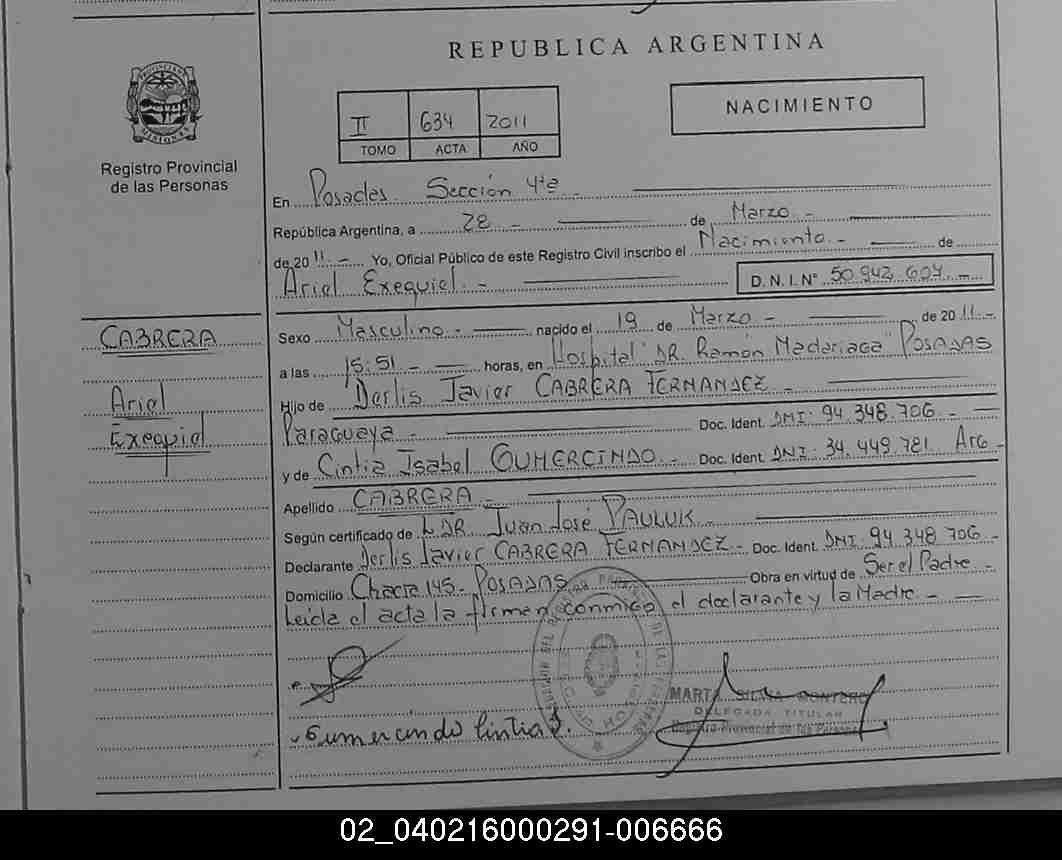 REPUBLICA ARGENTINA
NACIMIENTO
II 634 2011
TOMO ACTA AÑO
PROVINCIA DE MISIONES
Registro Provincial
de las Personas
En Posadas. Sección 4ta
República Argentina, a 28 - de Marzo -
de 2011 - Yo, Oficial Público de este Registro Civil inscribo el Nacimiento. - de
Ariel Exequiel. - D.N.I.Nº 50.942.604. -
CABRERA
Ariel
Exequiel
Sexo Masculino - nacido el 19 de Marzo - de 2011. -
a las 15:51 - horas, en Hospital "DR. Ramón Madariaga" POSADAS
Hijo de Derlis Javier CABRERA FERNANDEZ -
Paraguaya - Doc. Ident. DNI: 94.348.706 -
y de Cintia Isabel GUMERCINDO. - Doc. Ident. DNI: 34.449.781. Arg -
Apellido CABRERA -
Según certificado de DR. Juan José PAULUK -
Declarante Derlis Javier CABRERA FERNANDEZ - Doc. Ident. DNI: 94 348 706 -
Domicilio Chacra 145 - POSADAS Obra en virtud de Ser el Padre -
Leída el acta la firman conmigo el declarante y la Madre. -
MARTA SILVIA MONTERO
DELEGADA TITULAR
Registro Provincial de las Personas
Gumercindo Cintia I.
02_040216000291-006666